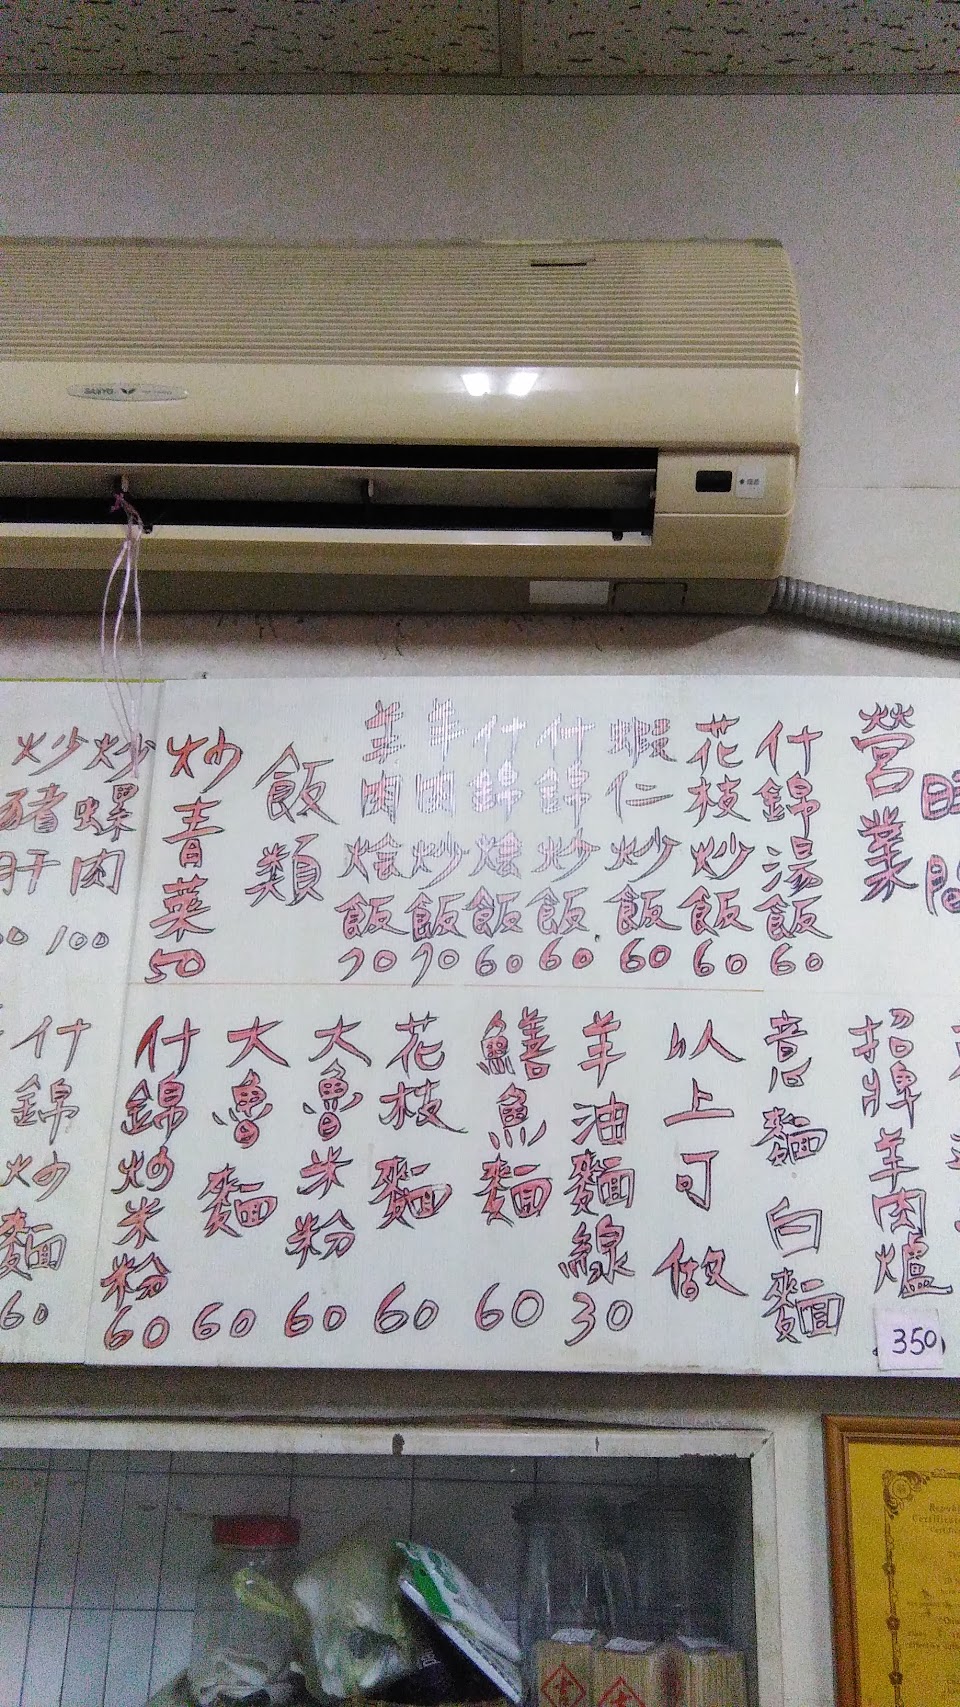 SANYO
炒豬肝
炒螺肉 100
炒青菜 50
飯類
羊肉燴飯 70
羊肉炒飯 70
什錦燴飯 60
什錦炒飯 60
蝦仁炒飯 60
花枝炒飯 60
什錦湯飯 60
營業
時間
什錦炒麵 60
什錦炒米粉 60
大魯麵 60
大魯米粉 60
花枝麵 60
鱔魚麵 60
羊油麵線 30
以上可做
意麵 白麵
招牌羊肉爐 350